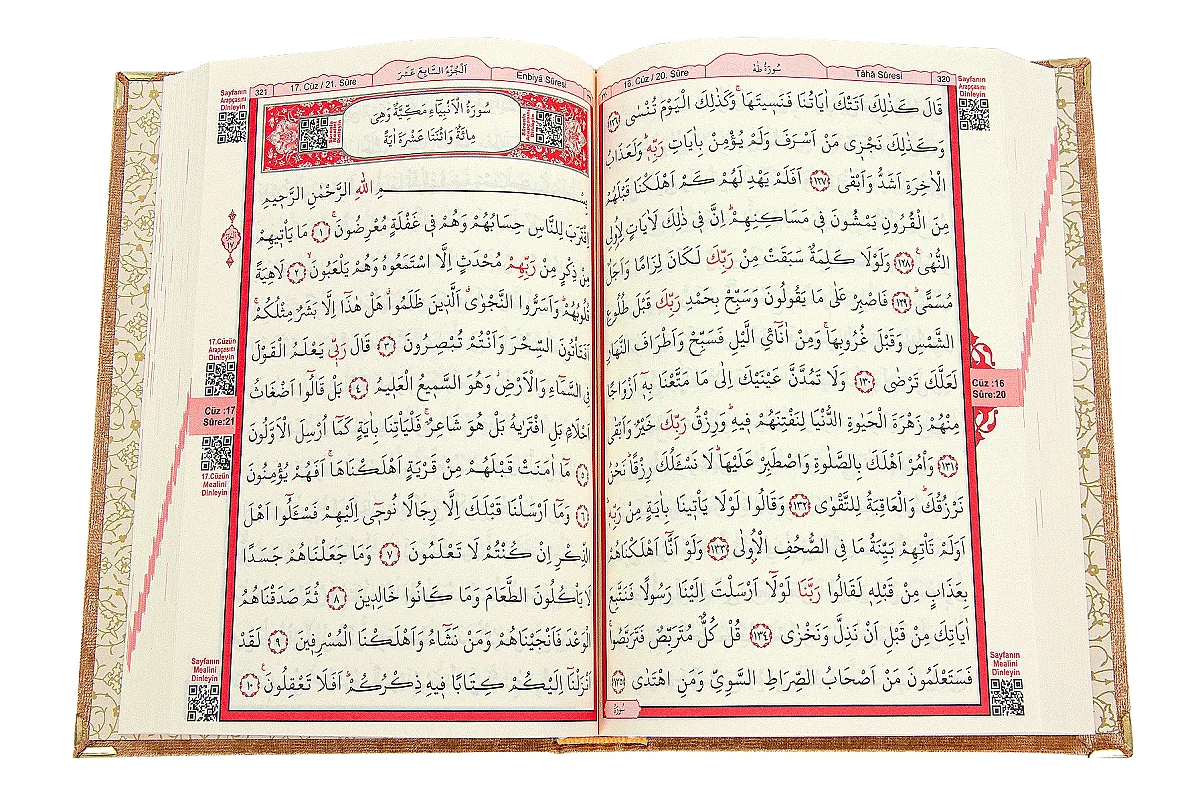 سُورَةُ طٰهٰ
16. Cüz / 20. Sûre
Tâhâ Sûresi
320
Sayfanın
Arapçasını
Dinleyin
قَالَ كَذٰلِكَ اَتَتْكَ اٰيَاتُنَا فَنَسٖيتَهَاۚ وَكَذٰلِكَ الْيَوْمَ تُنْسٰى ﴿١٢٦﴾
وَكَذٰلِكَ نَجْزٖي مَنْ اَسْرَفَ وَلَمْ يُؤْمِنْ بِاٰيَاتِ رَبِّهٖۜ وَلَعَذَابُ
الْاٰخِرَةِ اَشَدُّ وَاَبْقٰى ﴿١٢٧﴾ اَفَلَمْ يَهْدِ لَهُمْ كَمْ اَهْلَكْنَا قَبْلَهُمْ
مِنَ الْقُرُونِ يَمْشُونَ فٖي مَسَاكِنِهِمْۜ اِنَّ فٖي ذٰلِكَ لَاٰيَاتٍ لِاُولِي
النُّهٰى۟ ﴿١٢٨﴾ وَلَوْلَا كَلِمَةٌ سَبَقَتْ مِنْ رَبِّكَ لَكَانَ لِزَامًا وَاَجَلٌ
مُسَمًّىۜ ﴿١٢٩﴾ فَاصْبِرْ عَلٰى مَا يَقُولُونَ وَسَبِّحْ بِحَمْدِ رَبِّكَ قَبْلَ طُلُوعِ
الشَّمْسِ وَقَبْلَ غُرُوبِهَاۚ وَمِنْ اٰنَٓائِ الَّيْلِ فَسَبِّحْ وَاَطْرَافَ النَّهَارِ
لَعَلَّكَ تَرْضٰى ﴿١٣٠﴾ وَلَا تَمُدَّنَّ عَيْنَيْكَ اِلٰى مَا مَتَّعْنَا بِهٖٓ اَزْوَاجًا
مِنْهُمْ زَهْرَةَ الْحَيٰوةِ الدُّنْيَا لِنَفْتِنَهُمْ فٖيهِۜ وَرِزْقُ رَبِّكَ خَيْرٌ وَاَبْقٰى
﴿١٣١﴾ وَأْمُرْ اَهْلَكَ بِالصَّلٰوةِ وَاصْطَبِرْ عَلَيْهَاۜ لَا نَسْـَٔلُكَ رِزْقًاۜ نَحْنُ
نَرْزُقُكَۜ وَالْعَاقِبَةُ لِلتَّقْوٰى ﴿١٣٢﴾ وَقَالُوا لَوْلَا يَأْتٖينَا بِاٰيَةٍ مِنْ رَبِّهٖۜ
اَوَلَمْ تَأْتِهِمْ بَيِّنَةُ مَا فِي الصُّحُفِ الْاُو۫لٰى ﴿١٣٣﴾ وَلَوْ اَنَّٓا اَهْلَكْنَاهُمْ
بِعَذَابٍ مِنْ قَبْلِهٖ لَقَالُوا رَبَّنَا لَوْلَٓا اَرْسَلْتَ اِلَيْنَا رَسُولًا فَنَتَّبِعَ
اٰيَاتِكَ مِنْ قَبْلِ اَنْ نَذِلَّ وَنَخْزٰى ﴿١٣٤﴾ قُلْ كُلٌّ مُتَرَبِّصٌ فَتَرَبَّصُواۚ
فَسَتَعْلَمُونَ مَنْ اَصْحَابُ الصِّرَاطِ السَّوِيِّ وَمَنِ اهْتَدٰى ﴿١٣٥﴾
سُورَةُ
Cüz :16
Sûre:20
Sayfanın
Mealini
Dinleyin
321
17. Cüz / 21. Sûre
اَلْجُزْءُ السَّابِعَ عَشَرَ
Enbiyâ Sûresi
Sayfanın
Arapçasını
Dinleyin
سُورَةُ الْاَنْبِيَٓاءِ مَكِّيَّةٌ وَهِيَ
مِائَةٌ وَاثْنَتَا عَشْرَةَ اٰيَةً
بِسْمِ اللّٰهِ الرَّحْمٰنِ الرَّحٖيمِ
اِقْتَرَبَ لِلنَّاسِ حِسَابُهُمْ وَهُمْ فٖي غَفْلَةٍ مُعْرِضُونَۚ ﴿١﴾ مَا يَأْتٖيهِمْ
مِنْ ذِكْرٍ مِنْ رَبِّهِمْ مُحْدَثٍ اِلَّا اسْتَمَعُوهُ وَهُمْ يَلْعَبُونَۙ ﴿٢﴾ لَاهِيَةً
قُلُوبُهُمْۜ وَاَسَرُّوا النَّجْوٰىۗ اَلَّذٖينَ ظَلَمُواۗ هَلْ هٰذَٓا اِلَّا بَشَرٌ مِثْلُكُمْۚ
اَفَتَأْتُونَ السِّحْرَ وَاَنْتُمْ تُبْصِرُونَ ﴿٣﴾ قَالَ رَبّٖي يَعْلَمُ الْقَوْلَ
فِي السَّمَٓاءِ وَالْاَرْضِۘ وَهُوَ السَّمٖيعُ الْعَلٖيمُ ﴿٤﴾ بَلْ قَالُٓوا اَضْغَاثُ
اَحْلَامٍ بَلِ افْتَرٰيهُ بَلْ هُوَ شَاعِرٌۚ فَلْيَأْتِنَا بِاٰيَةٍ كَمَٓا اُرْسِلَ الْاَوَّلُونَ
﴿٥﴾ مَٓا اٰمَنَتْ قَبْلَهُمْ مِنْ قَرْيَةٍ اَهْلَكْنَاهَاۚ اَفَهُمْ يُؤْمِنُونَ
﴿٦﴾ وَمَٓا اَرْسَلْنَا قَبْلَكَ اِلَّا رِجَالًا نُوحٖٓي اِلَيْهِمْ فَسْـَٔلُٓوا اَهْلَ
الذِّكْرِ اِنْ كُنْتُمْ لَا تَعْلَمُونَ ﴿٧﴾ وَمَا جَعَلْنَاهُمْ جَسَدًا
لَا يَأْكُلُونَ الطَّعَامَ وَمَا كَانُوا خَالِدٖينَ ﴿٨﴾ ثُمَّ صَدَقْنَاهُمُ
الْوَعْدَ فَاَنْجَيْنَاهُمْ وَمَنْ نَشَٓاءُ وَاَهْلَكْنَا الْمُسْرِفٖينَ ﴿٩﴾ لَقَدْ
اَنْزَلْنَٓا اِلَيْكُمْ كِتَابًا فٖيهِ ذِكْرُكُمْۜ اَفَلَا تَعْقِلُونَ۟ ﴿١٠﴾
17.Cüzün
Arapçasını
Dinleyin
Cüz :17
Sûre:21
17.Cüzün
Mealini
Dinleyin
Sayfanın
Mealini
Dinleyin